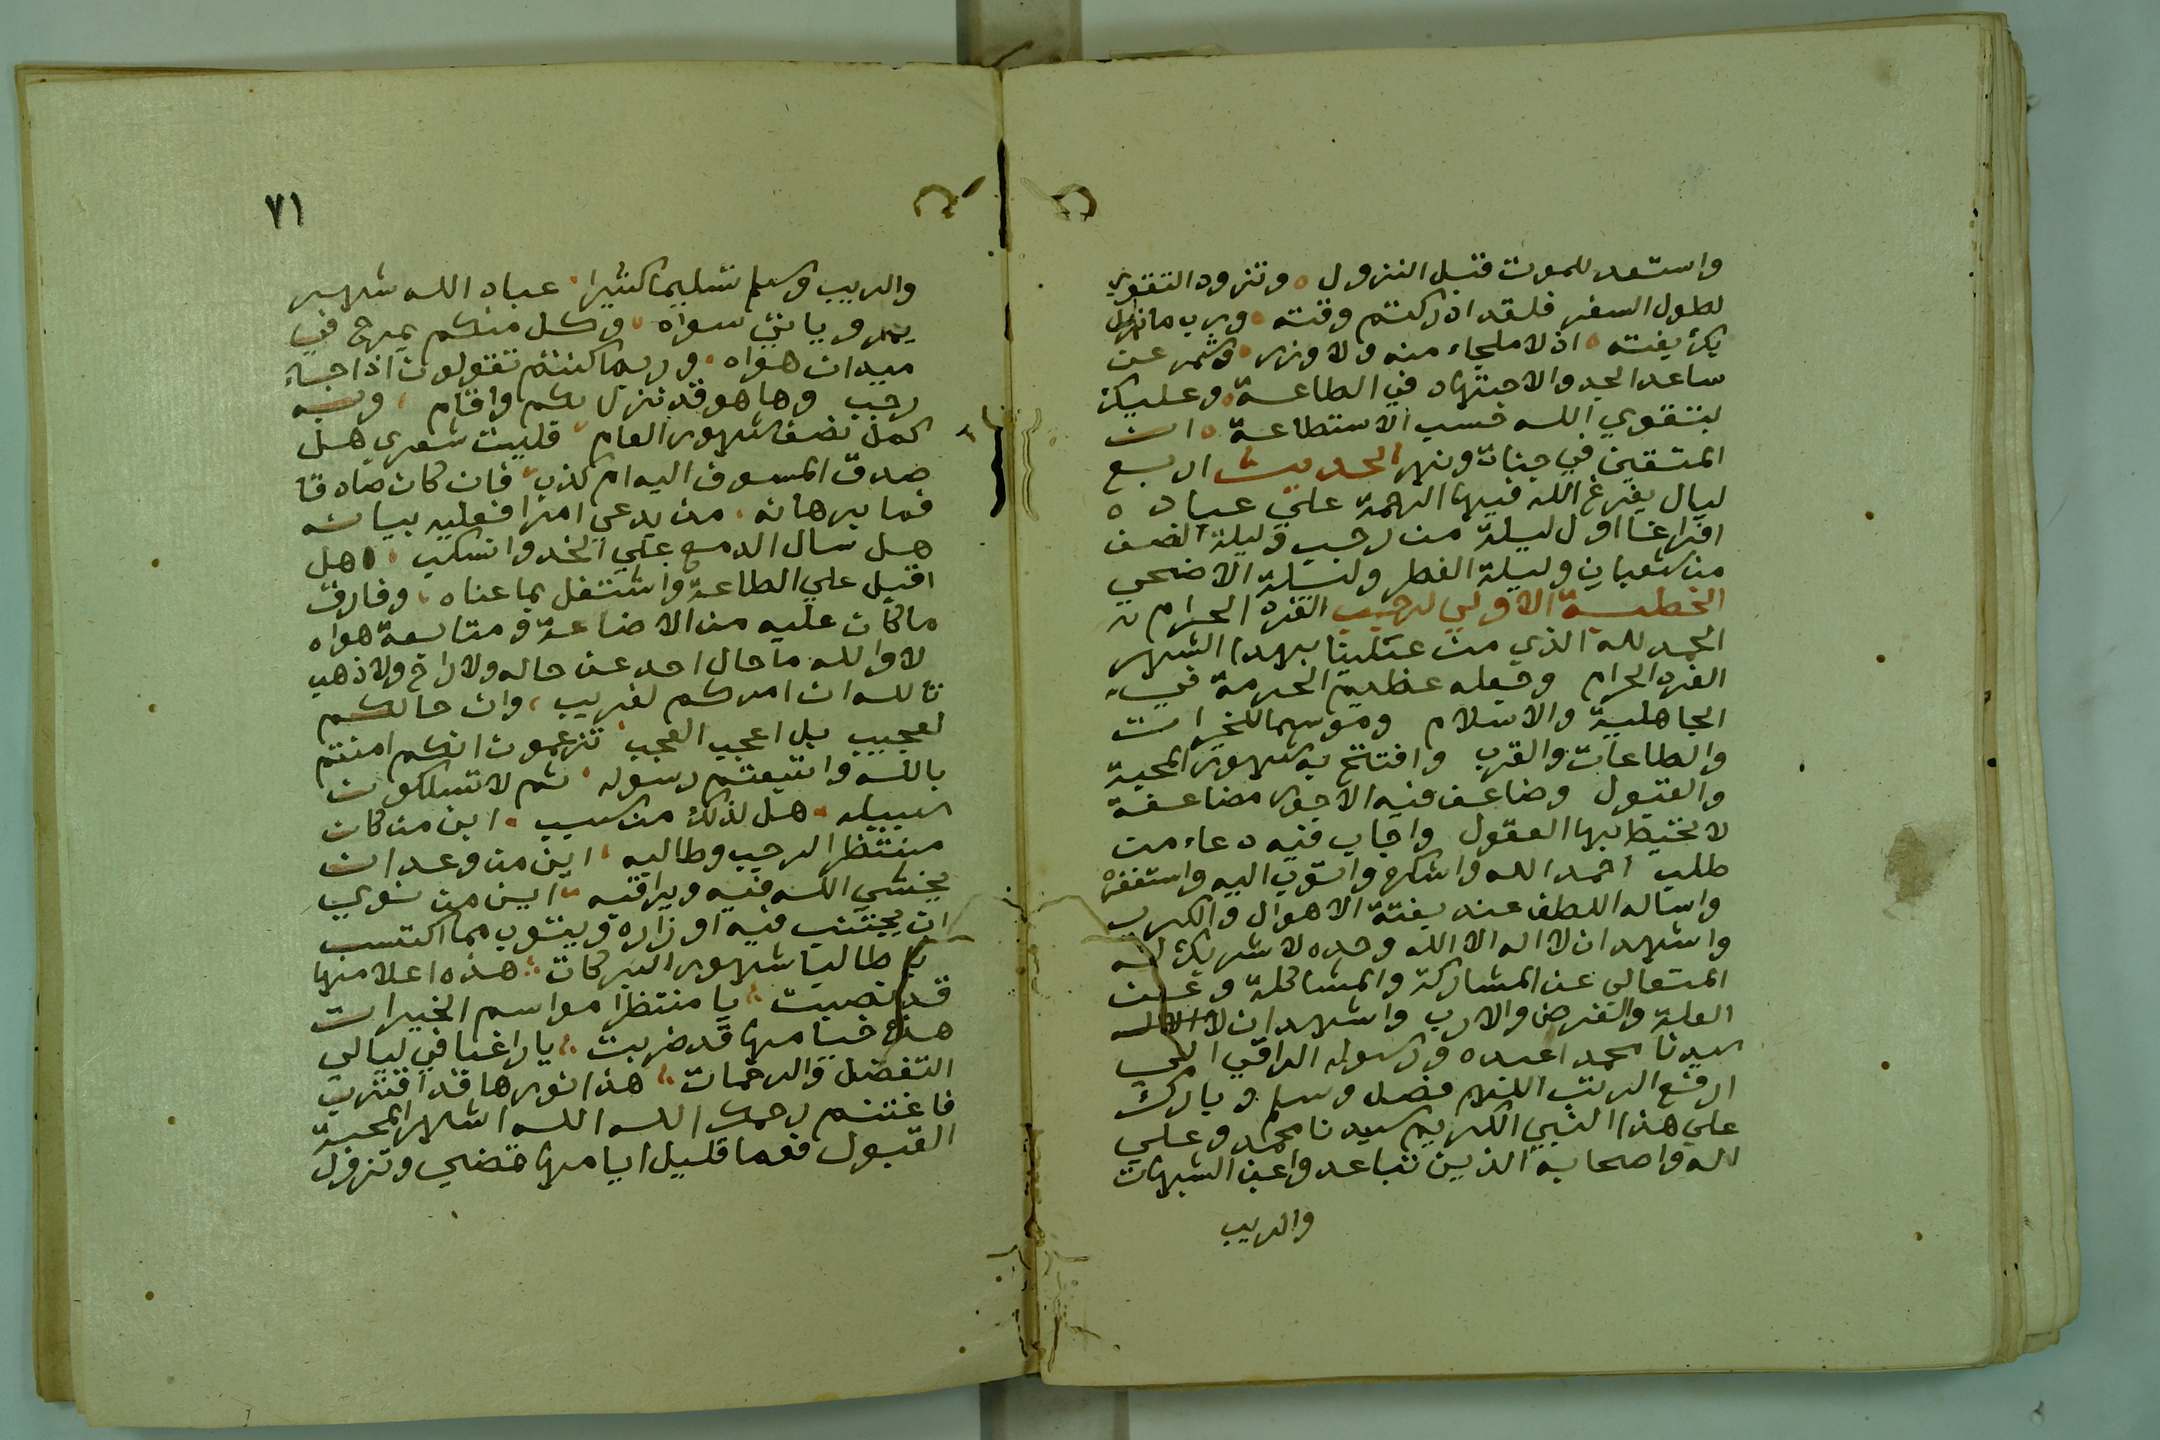 واستعد للموت قبل النزول ه وتزود التقوي
لطول السفر فلقد ادركتم وقته ه ورب ما نزل
بك بغته ه اذ لا ملجاء منه ولا وزر ه وشمر عن
ساعد الجد والاجتهاد في الطاعة ه وعليك
بتقوي الله حسب الاستطاعة ه ان
المتقين في جنات ونهر الحديث اربع
ليال يفرغ الله فيها الرحمة علي عباده
افراغا اول ليلة من رجب وليلة النصف
من شعبان وليلة الفطر وليلة الاضحي
الخطبة الاولي لرجب الفرد الحرام
الحمد لله الذي من علينا بهذا الشهر
الفرد الحرام وجعله عظيم الحرمة في
الجاهلية والاسلام وموسما للخيرات
والطاعات والقرب وافتتح به شهور المحبة
والقبول وضاعف فيه الاجور مضاعفة
لا تحيط بها العقول واجاب فيه دعاء من
طلب احمد الله واشكره واتوب اليه واستغفره
واساله اللطف عند بغتة الاهوال والكرب
واشهد ان لا اله الا الله وحده لا شريك له
المتعالي عن المشاركة والمشاكلة وعن
العلة والغرض والارب واشهد ان لا اله
سيدنا محمدا عبده ورسوله الراقي الي
ارفع الرتب اللهم فصل وسلم وبارك
علي هذا النبي الكريم سيدنا محمد وعلي
اله واصحابه الذين تباعدوا عن الشبهات
والريب
٧١
والريب وسلم تسليما كثيرا عباد الله شهر
يمر وياتي سواه وكل منكم يمرح في
ميدان هواه وربما كنتم تقولون اذا جاء
رجب وها هو قد نزل بكم واقام وبه
كمل نصف شهور العام فليت شعري هل
صدق المسوف اليه ام كذب فان كان صادقا
فما برهانه من يدعي امرا فعليه بيانه
هل سال الدمع علي الخد وانسكب وهل
اقبل علي الطاعة واشتغل بما عناه وفارق
ما كان عليه من الاضاعة ومتابعة هواه
لا والله ما حال احد عن حاله ولا راح ولا ذهب
تالله ان امركم لغريب وان حالكم
لعجيب بل اعجب العجب تزعمون انكم امنتم
بالله واتبعتم رسوله ثم لا تسلكون
سبيله هل لذلك من سبب اين من كان
منتظرا لرجب وطالبه اين من وعد ان
يخشي الله فيه ويراقبه اين من نوي
ان يجتنب فيه اوزاره ويتوب مما اكتسب
يا طالبا شهور البركات هذه اعلامها
قد نصبت يا منتظرا مواسم الخيرات
هذه خيامها قد ضربت يا راغبا في ليالي
التفضل والرحمات هذا نورها قد اقترب
فاغتنم رحمك الله الله اشهر المحبة
القبول فعما قليل ايامها تمضي وتزول